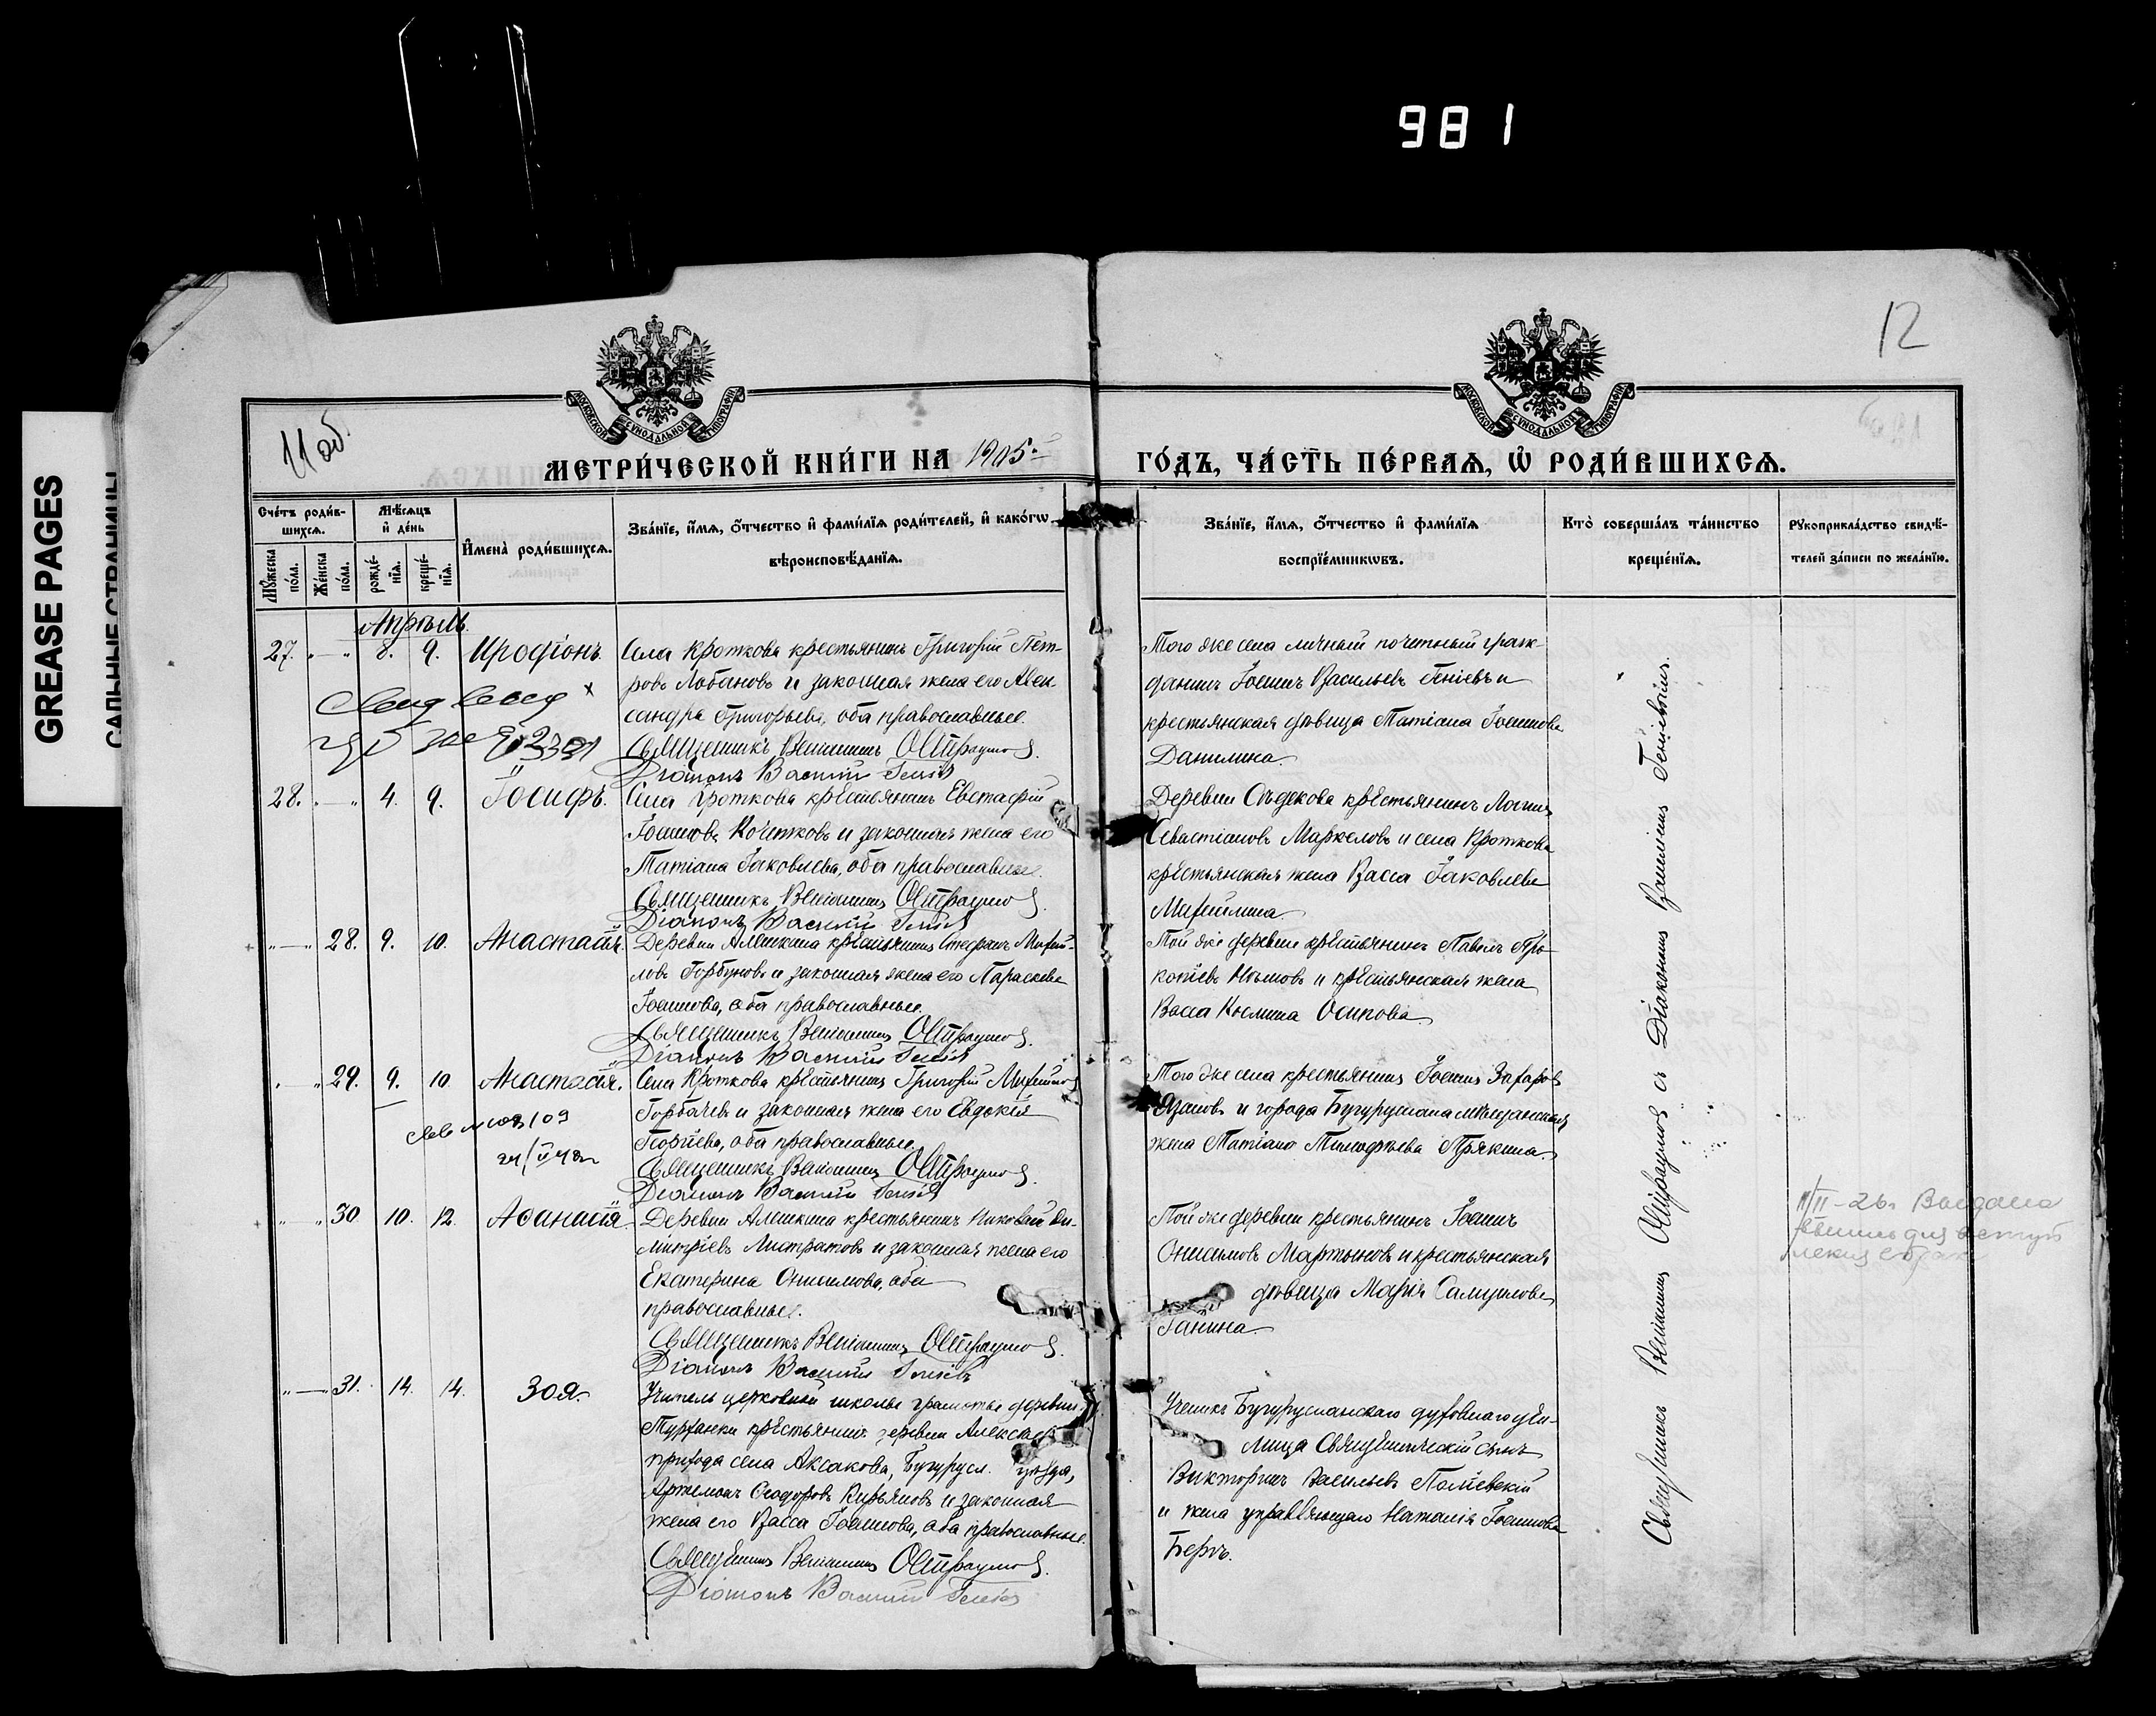 981
GREASE PAGES
САЛЬНЫЕ СТРАНИЦЫ
12
11 об.
МОСКОВСКОЙ СѴНОДАЛЬНОЙ ТИПОГРАФІИ
МОСКОВСКОЙ СѴНОДАЛЬНОЙ ТИПОГРАФІИ
МЕТРИ́ЧЕСКОЙ КНИ́ГИ НА 1905 й
ГО́ДЪ, ЧА́СТЬ ПЕ́РВАѦ, Ѡ҆ РОДИ́ВШИХСѦ.
Сче́тъ роди́вшихсѧ.
Мꙋ́жеска по́ла.
Же́нска по́ла.
Мѣ́сѧцъ и҆ де́нь
рожде́нїѧ.
креще́нїѧ.
И҆мена̀ роди́вшихсѧ.
Зва́нїе, и҆́мѧ, ѻ҆́тчество и҆ фами́лїѧ роди́телей, и҆ како́гѡ
вѣроисповѣ́данїѧ.
Зва́нїе, и҆́мѧ, ѻ҆́тчество и҆ фами́лїѧ
воспрїе́мникѡвъ.
Кто̀ соверша́лъ та́инство
креще́нїѧ.
Рꙋкоприкла́дство свидѣ́-
телей за́писи по жела́нїю.
Апрѣль.
27. 8. 9. Иродіонъ.
Села Кроткова крестьянинъ Григорій Пет-
ровъ Лобановъ и законная жена его Алек-
сандра Григорьева, оба православные.
Священникъ Веніаминъ
Діаконъ Василій Геніевъ
Того же села личный почетный граж-
данинъ Іоаннъ Васильевъ Геніевъ и
крестьянская дѣвица Татіана Іоаннова
Данилина.
28. 4. 9. Іосифъ.
Села Кроткова крестьянинъ Евстафій
Іоанновъ Кочетковъ и законная жена его
Татіана Іаковлева, оба православные.
Священникъ Веніаминъ
Діаконъ Василій Геніевъ
крестьянинъ
Севастіановъ Маркеловъ и села Кроткова
крестьянская жена Васса Іаковлева
28. 9. 10. Анастасія.
Деревни Алешкина крестьянинъ Стефанъ Михай-
ловъ Горбуновъ и законная жена его Параскева
Іоаннова, оба православные.
Священникъ Веніаминъ
Діаконъ Василій Геніевъ
Той же деревни крестьянинъ Павелъ Про-
копіевъ и крестьянская жена
Васса Космина Осипова.
29. 9. 10. Анастасія.
Села Кроткова крестьянинъ Григорій Михайловъ
Горбачевъ и законная жена его Евдокія
Георгіева, оба православные.
Священникъ Веніаминъ
Діаконъ Василій Геніевъ
Того же села крестьянинъ Іоаннъ Захаровъ
и города Бугуруслана мѣщанская
жена Татіана Тимофѣева Прякина.
30 10. 12. Аѳанасія.
Деревни Алешкина крестьянинъ Николай Ди-
митріевъ Листратовъ и законная жена его
Екатерина Онисимова, оба
православные.
Священникъ Веніаминъ
Діаконъ Василій Геніевъ
Той же деревни крестьянинъ Іоаннъ
Онисимовъ Мартыновъ и крестьянская
дѣвица Марія Самуилова
Ганина.
11/II-26г Выдана
31. 14. 14. Зоя.
Учитель церковной школы грамоты деревни
крестьянинъ деревни
прихода села Аксакова, Бугурусл. уѣзда,
Артемонъ Ѳеодоровъ Кирьяновъ и законная
жена его Васса Іоаннова, оба православные.
Священникъ Веніаминъ
Діаконъ Василій Геніевъ
Ученикъ Бугурусланскаго духовнаго учи-
лища Священническій сынъ
Викторинъ Васильевъ
и жена управляющаго Наталія Іоаннова
Бергъ.
Священникъ Веніаминъ съ Діакономъ Василіемъ Геніевымъ.